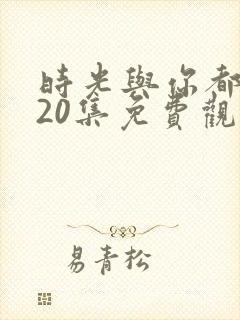 時光與你都
20集免費觀
易青松